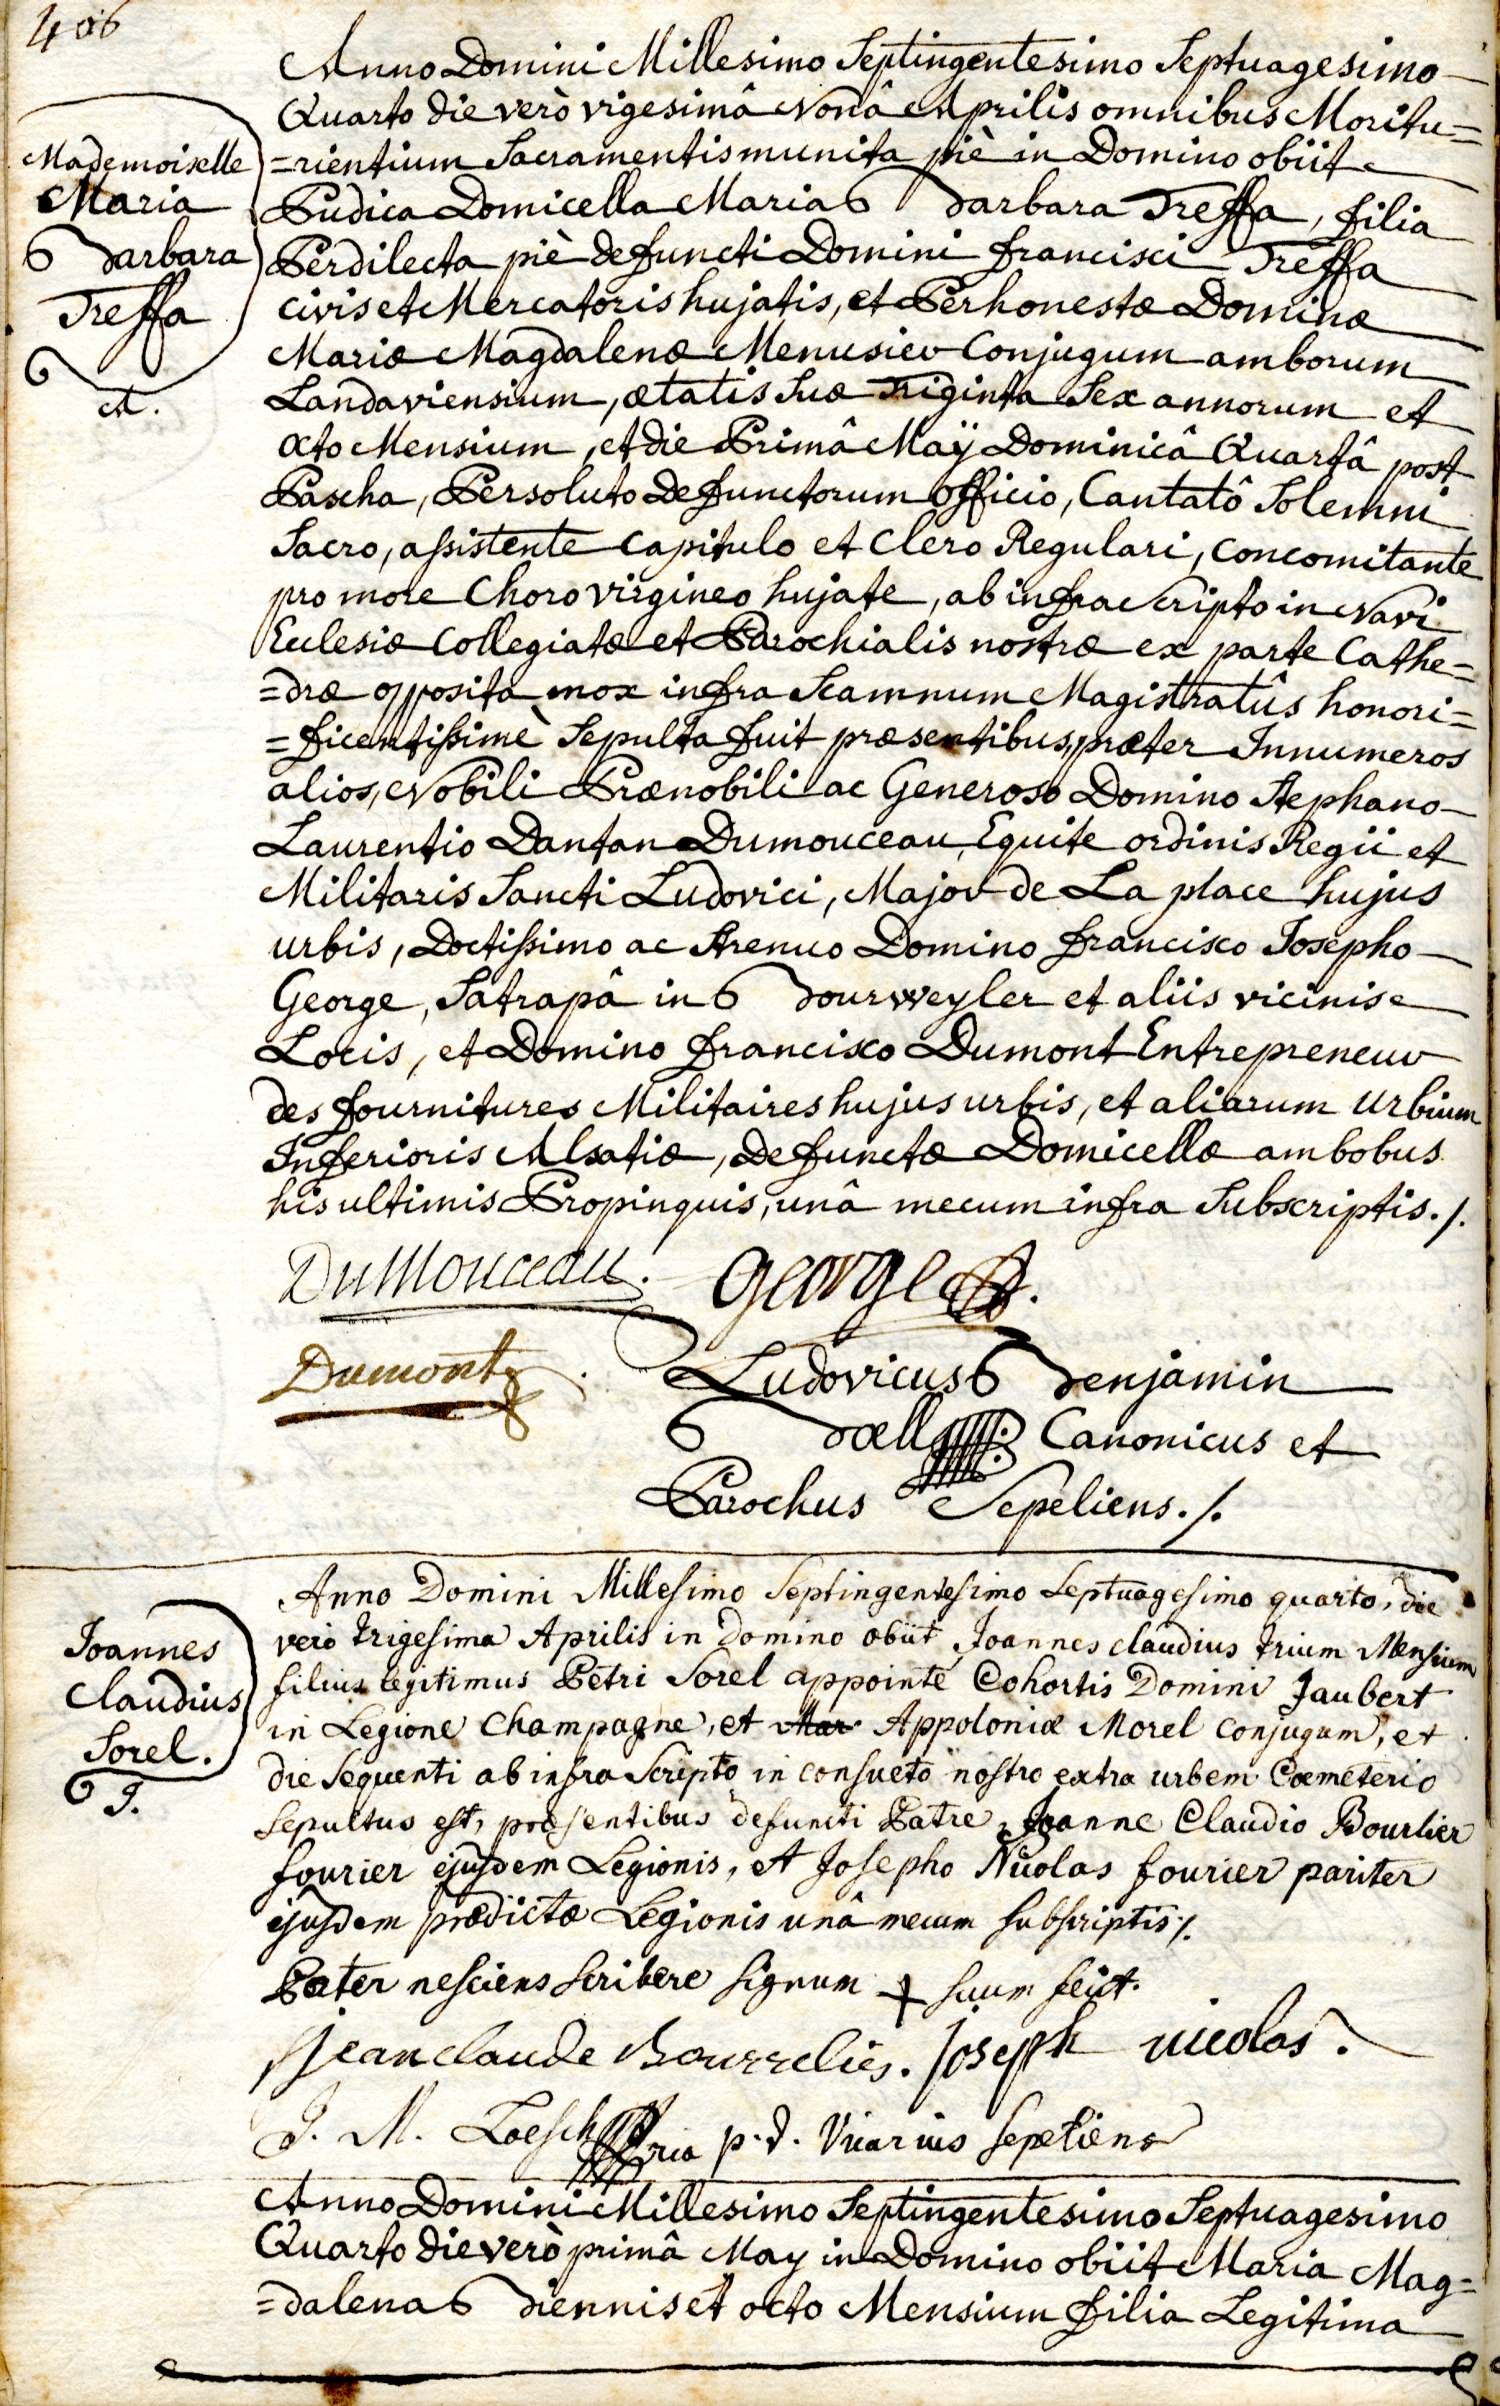 406
Anno Domini Millesimo Septingentesimo Septuagesimo
Quarto die verò vigesimâ Nonâ Aprilis omnibus Moritu=
=rientium Sacramentis munita piè in Domino obiit
Pudica Domicella Maria Barbara Treffa, filia
Perdilecta piè defuncti Domini francisci Treffa
civis et Mercatoris hujatis, et Perhonestæ Dominæ
Mariæ Magdalenæ Menusier Conjugum amborum
Landaviensium, ætatis suæ Triginta Sex annorum et
octo Mensium, et die Primâ Maÿ Dominicâ Quartâ post
Pascha, Persoluto defunctorum officio, Cantatô Solemni
Sacro, assistente Capitulo et Clero Regulari, concomitante
pro more Choro virgineo hujate, ab infra Scripto in Navi
Eclesiæ Collegiatæ et Parochialis nostræ ex parte Cathe=
=dræ opposita mox infra Scamnum Magistratûs honori=
=ficentissimè Sepulta fuit præsentibus, præter Innumeros
alios, Nobili Prænobili ac Generoso Domino Stephano
Laurentio Dantan Dumouceau, Equite ordinis Regii et
Militaris Sancti Ludovici, Major de La place hujus
urbis, Doctissimo ac Strenuo Domino francisco Josepho
George, Satrapâ in Bourweyler et aliis vicinis
Locis, et Domino francisco Dumont Entrepreneur
des fournitures Militaires hujus urbis, et aliarum Urbium
Inferioris Alsatiæ, defunctæ Domicellæ ambobus
his ultimis Propinquis, unâ mecum infra Subscriptis./.
Mademoiselle
Maria
Barbara
Treffa
A.
DuMouceau. George.
Dumont.
Ludovicus Benjamin
Boell Canonicus et
Parochus Sepeliens./.
Anno Domini Millesimo Septingentesimo Septuagesimo quarto, die
vero trigesima Aprilis in Domino obiit Joannes claudius trium Mensium
filius legitimus Petri Sorel appointé Cohortis Domini Jaubert
in Legione Champagne, et Mar Appoloniæ Morel conjugum, et
die Sequenti ab infra Scripto in consueto nostro extra urbem Cœmeterio
Sepultus est, præsentibus defuncti Patre, Joanne Claudio Bourlier
fourier ejusdem Legionis, et Josepho Nicolas fourier pariter
ejusdem prædictæ Legionis unâ mecum subscriptis/.
Pater nesciens Scribere signum + suum fecit.
Joannes
Claudius
Sorel.
J.
jean claude Bourrelies. joseph nicolas.
J. M. Loesch p.d. Vicarius Sepeliens
Anno Domini Millesimo Septingentesimo Septuagesimo
Quarto die verò primâ May in Domino obiit Maria Mag=
=dalena Biennis et octo Mensium filia Legitima